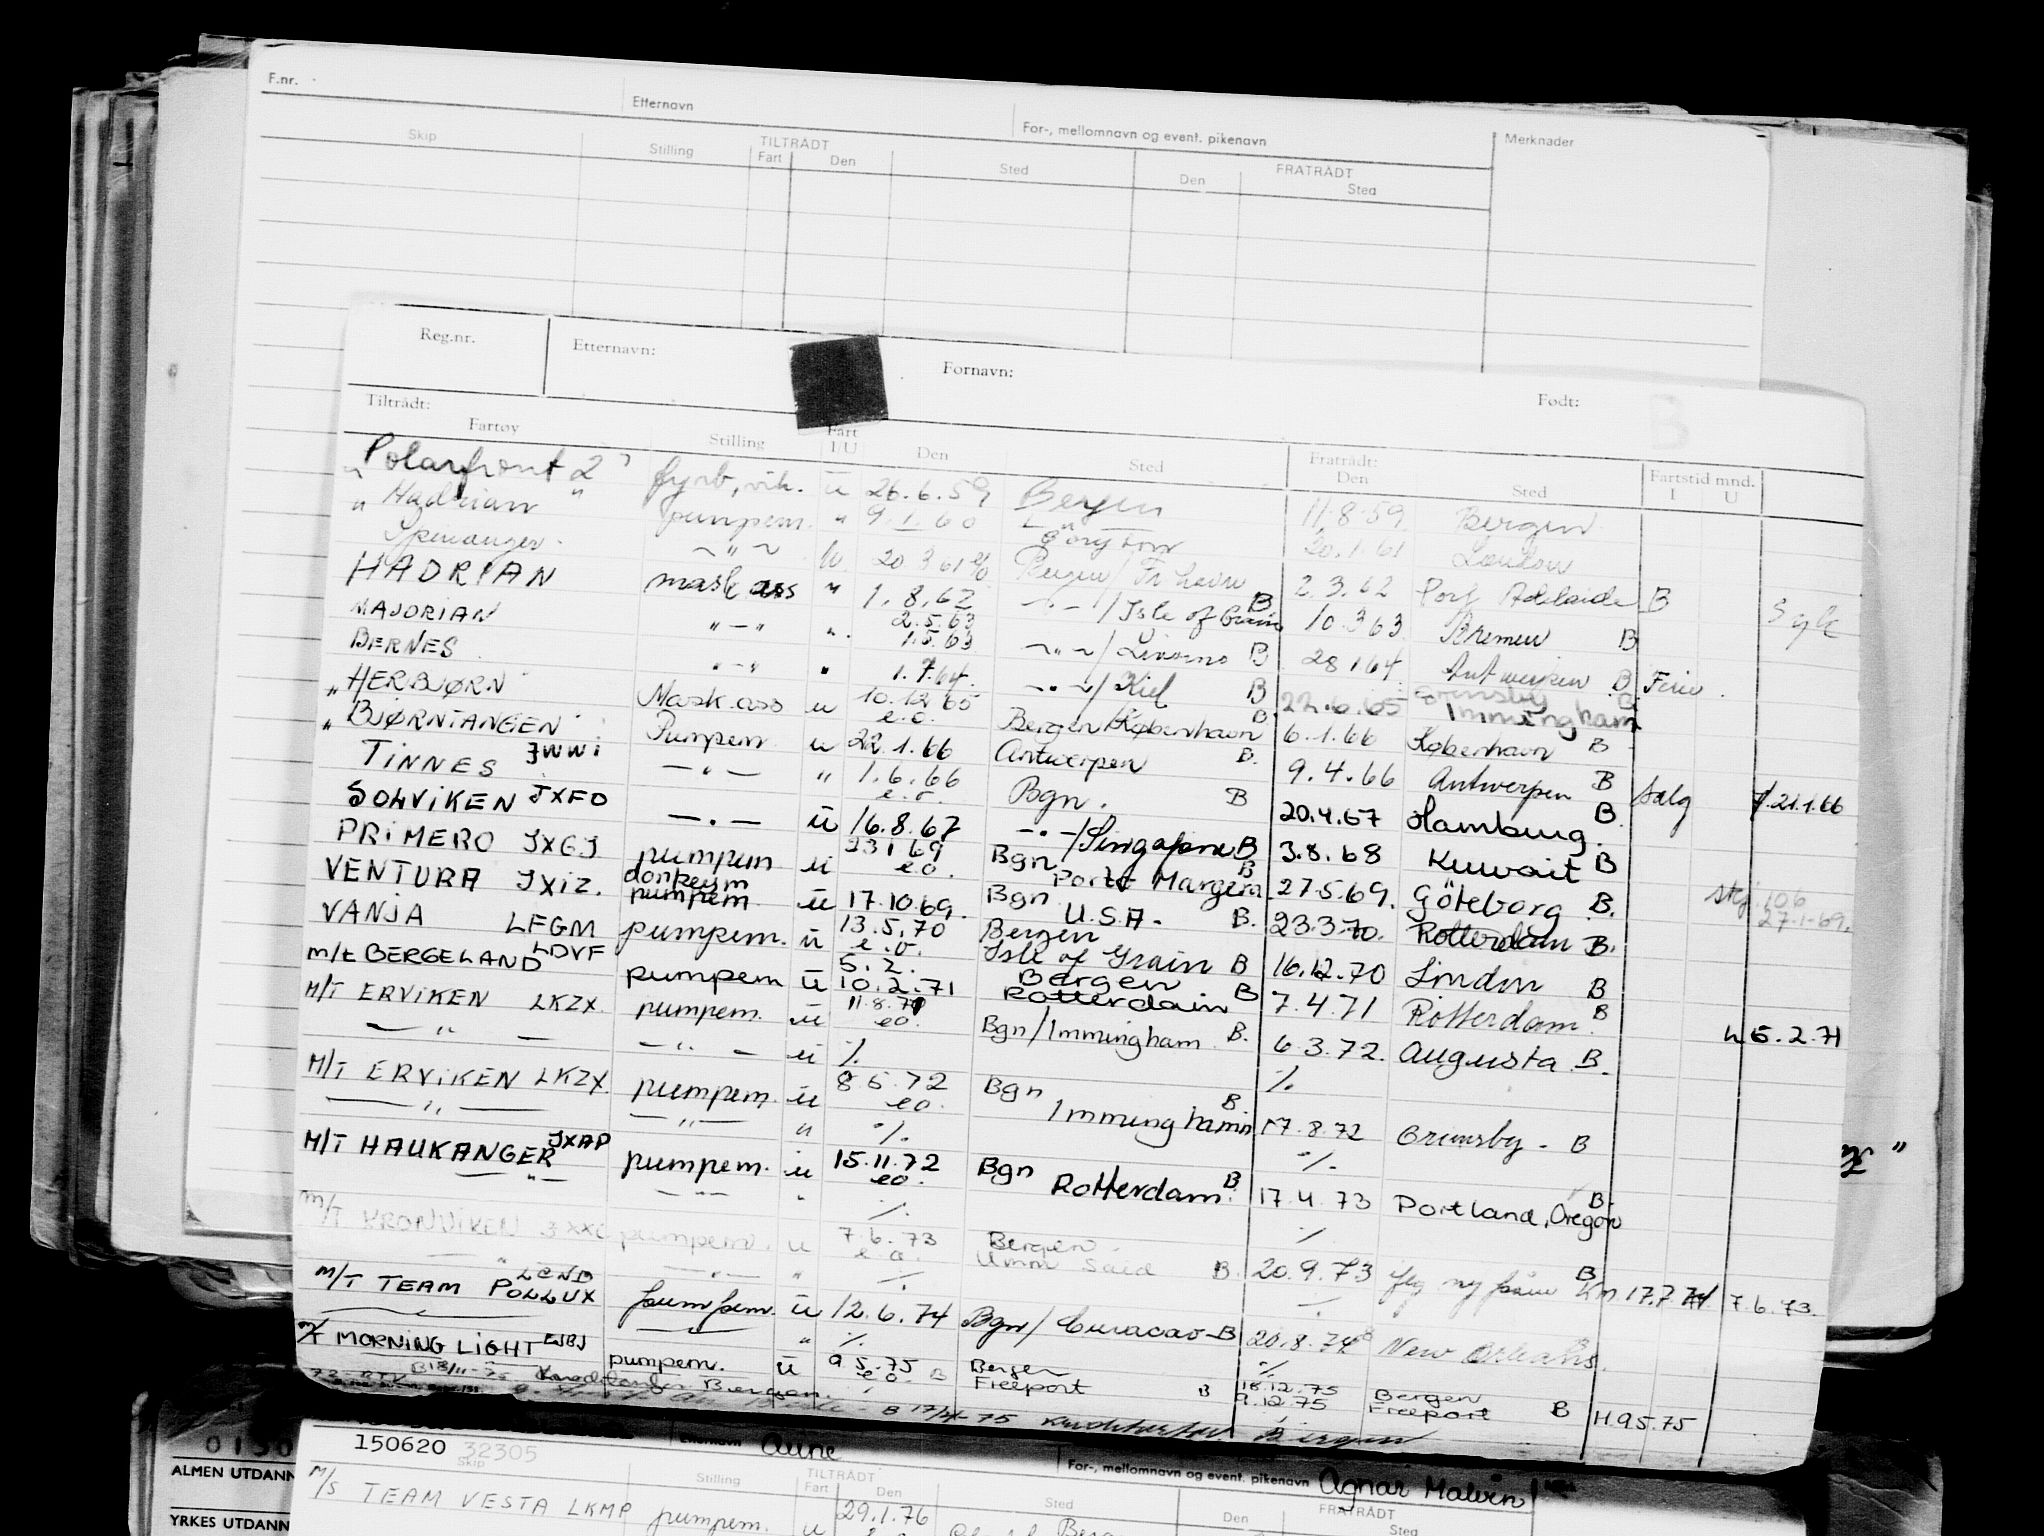 F.nr. Etternavn For-, mellomnavn og event. pikenavn Merknader
Skip Stilling TILTRÅDT Fart Den Sted FRATRÅDT Den Sted
Reg.nr. Etternavn: Fornavn: Født: B
Tiltrådt: Fratrådt: Fartstid mnd.
Fartøy Stilling Fart I/U Den Sted Den Sted I U
"Polarfront 2" fyrb, vik. u 26.6.59 Bergen 11.8.59 Bergen
" Hadrian " pumpem. " 9.1.60 20.1.61 London
Spinanger ~"~ 20.3.61 Bergen / Fr.havn 2.3.62 Port Adelaide B
HADRIAN mask ass " 1.8.62 -"-/Isle of Grain B 10.3.63 Bremen B
MAJORIAN "-" ". 2.5.63 1.5.63 ~"~/Livorno B 28.1.64 Antwerpen B Ferie.
BERNES "-" " 1.7.64. -"-/Kiel B 22.6.65 Grimsby Immingham B
" HERBJØRN" Mask.ass u 10.12.65 e.o. Bergen/København B 6.1.66 København B
" BJØRNTANGEN" Pumpem u 22.1.66 Antwerpen B. 9.4.66 Antwerpen B Salg 21.1.66
TINNES JWWI -"- " 1.6.66 e.o. Bgn. B 20.4.67 Hamburg. B
SOLVIKEN JXFO -"- ü 16.8.67 -"-/Singapore B 3.8.68 Kuwait B
PRIMERO JXGJ pumpem u 23.1.69 e.o. Bgn Porto Margera B 27.5.69. Göteborg B. 27.1.69.
VENTURA JXIZ. donkeym pumpem u 17.10.69. Bgn U.S.A. B. 23.3.70. Rotterdam B.
VANJA LFGM pumpem. u 13.5.70 e.o. Bergen Isle of Grain B 16.12.70 London B
m/t BERGELAND LDVF pumpem u 5.2. 10.2.71 Bergen Rotterdam B 7.4.71 Rotterdam. B 5.2.71
M/T ERVIKEN LKZX. pumpem. u 11.8.71 eo. Bgn/Immingham B. 6.3.72. Augusta B.
— " — — " — u ·/. ·/.
M/T ERVIKEN LKZX pumpem. u 8.5.72 eo. Bgn Immingham B. 17.8.72 Grimsby - B
— " — — " — " ·/. ·/.
M/T HAUKANGER JXAP pumpem. u 15.11.72 eo. Bgn Rotterdam. B. 17.4.73 Portland, Oregon B.
— " — — " — " ·/. ·/.
M/T KRONVIKEN pumpem. u 7.6.73 e.o. Bergen Umm Said B. 20.9.73 B 17.7.74 7.6.73.
— " — — " — " ·/. ·/.
M/T TEAM POLLUX LCND pumpem. u 12.6.74 Bgn/ Curacao-B 20.8.74 B New Orleans.
" ·/. ·/.
M/T MORNING LIGHT pumpem. u 9.5.75 e.o. B Bergen Freeport B 18.12.75 9.12.75 Bergen Freeport B H.9.5.75
Bergen
B 17/ 75 Bergen
0130
150620 32305 Etternavn Aune For-, mellomnavn og event. pikenavn Agnar Malvin
ALMEN UTDANN
Skip Stilling TILTRÅDT Fart Den Sted FRATRÅDT Den Sted
M/S TEAM VESTA LKMP pumpem. u 29.1.76
YRKES UTDANN